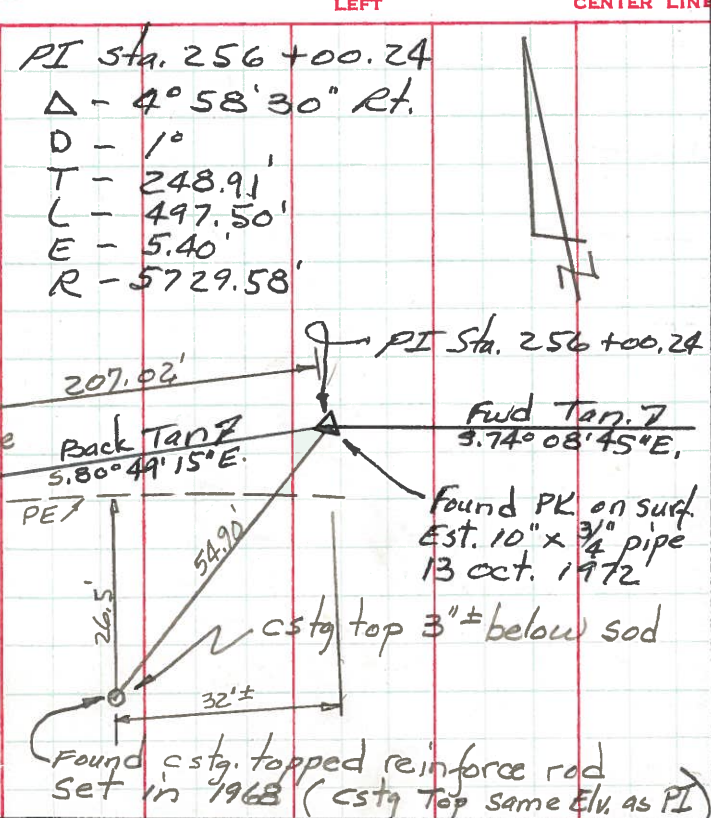 LEFT
CENTER LINE
PI Sta. 256 +00.24
Δ - 4° 58' 30" Rt.
D - 1°
T - 248.91'
L - 497.50'
E - 5.40'
R - 5729.58'
N
PI Sta. 256 +00.24
207.02'
Back Tan
S.80° 49' 15" E.
Fwd Tan.
S.74° 08' 45" E.
e
PE
Found PK on surf.
Est. 10" x 3/4" pipe
13 Oct. 1972
54.90'
26.5'
cstg top 3"± below sod
32'±
Found cstg. topped reinforce rod
Set in 1968 (cstg Top same Elv. as PI)